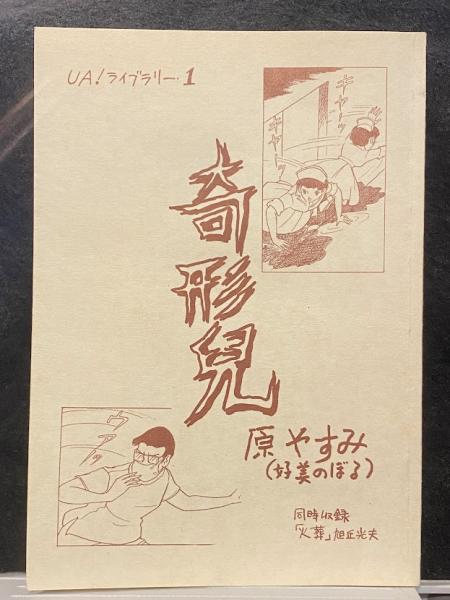 UA!ライブラリー・1
キャーッ
キャーッ
奇形児
ウアッ
原やすみ
(好美のぼる)
同時収録
「火葬」旭丘光夫